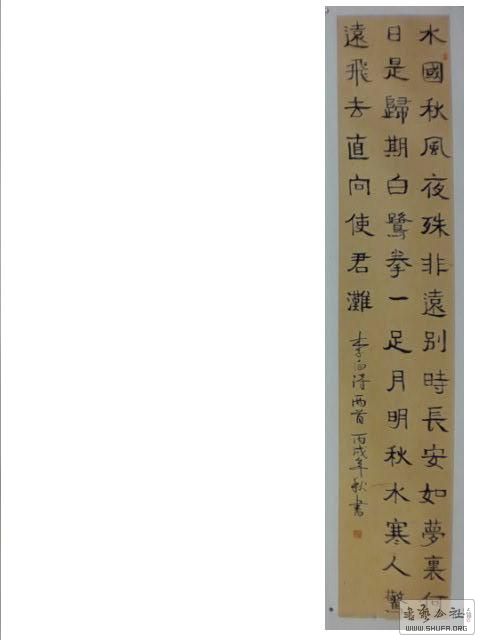 水國秋風夜殊非遠別時長安如夢裏何
日是歸期白鷺拳一足月明秋水寒人驚
遠飛去直向使君灘
李白詩兩首丙戌年秋書
書藝公社
WWW.SHUFA.ORG